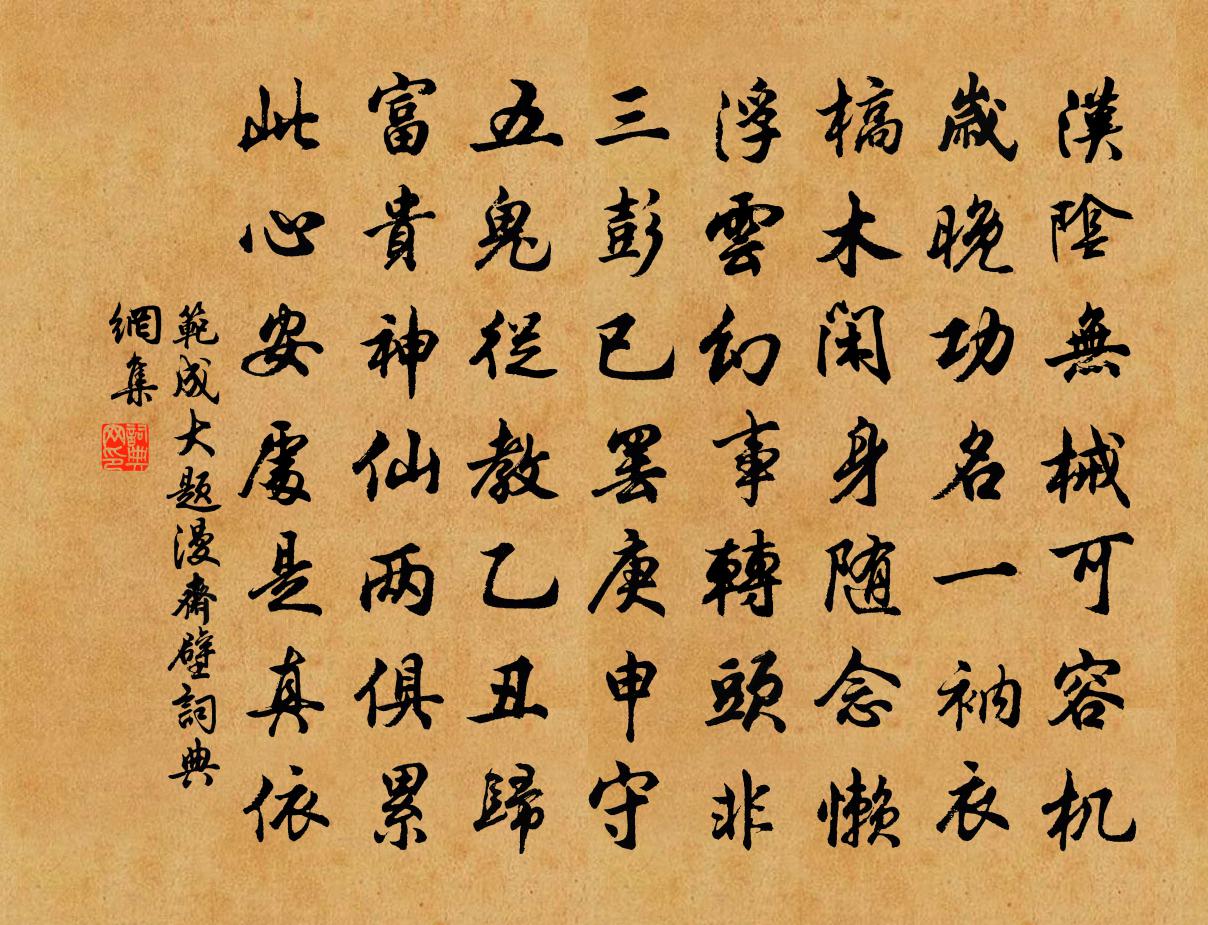 漢陰無械可容机
歲晚功名一衲衣
槁木閑身隨念懶
浮雲幻事轉頭非
三彭已罢庚申守
五鬼從教乙丑歸
富貴神仙兩俱累
此心安處是真依
範成大题漫齋壁詞典
網集
詞典网印